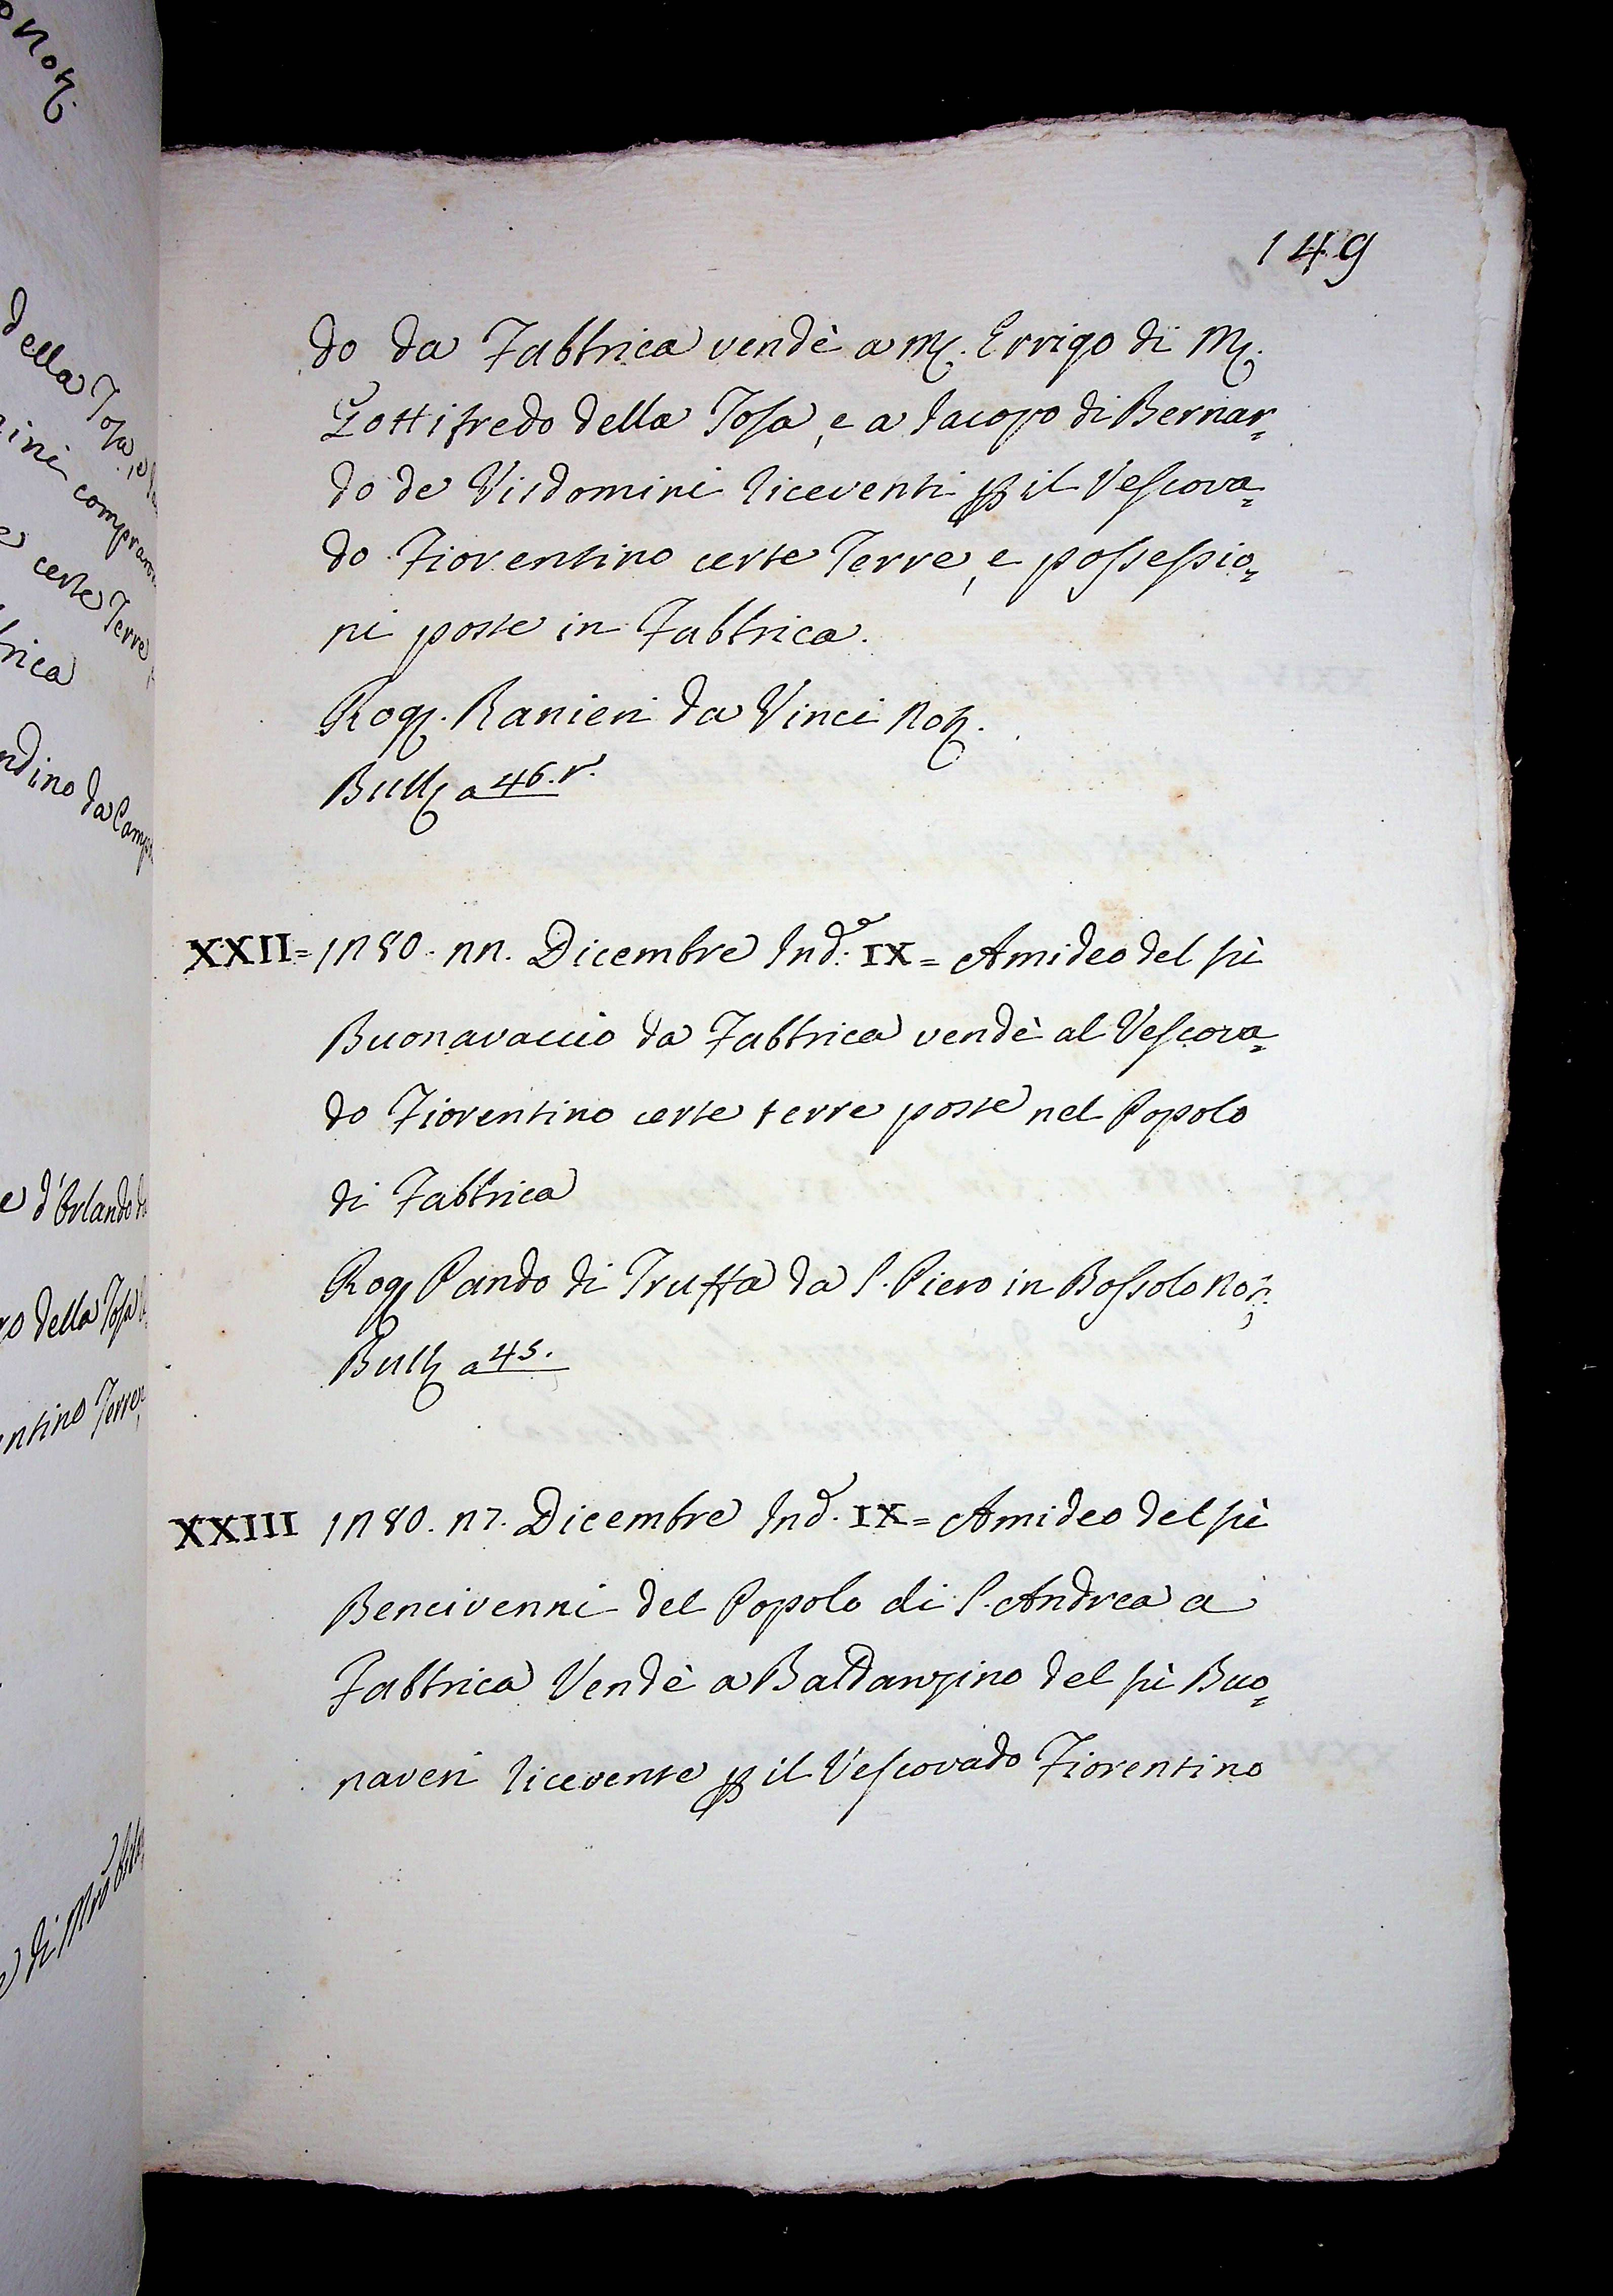 149
do da Fabbrica vendè a M. Errigo di M.
Gottifredo della Tosa, e a Iacopo di Bernar=
do de Visdomini riceventi per il Vescova=
do Fiorentino certe Terre, e possessio=
ni poste in Fabbrica.
Rog. Ranieri da Vinci Not.
Bull. a 46. r.
XXII= 1280. 22. Dicembre Ind. IX= Amideo del fù
Buonavaccio da Fabbrica vendè al Vescova=
do Fiorentino certe terre poste nel Popolo
di Fabbrica
Rog. Pando di Truffa da S. Piero in Bossolo Not.
Bull. a 45.
XXIII 1280. 27. Dicembre Ind. IX= Amideo del fù
Bencivenni del Popolo di S. Andrea a
Fabbrica Vendè a Baldanzino del fù Buo=
naveri ricevente per il Vescovado Fiorentino